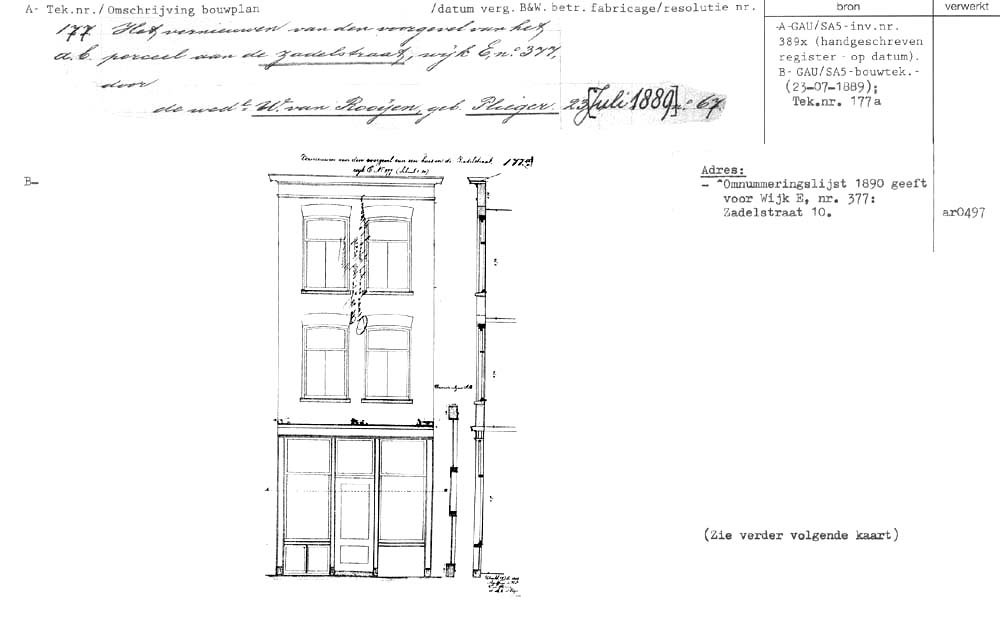 A- Tek.nr./Omschrijving bouwplan /datum verg. B&W. betr. fabricage/resolutie nr. bron verwerkt
177 Het vernieuwen van den voorgevel van het
a.b. perceel aan de Zadelstraat, wijk E, no. 377,
door
de wede. W. van Rooijen, geb. Plieger. 23 [Juli 1889] no. 67
A-GAU/SA5-inv.nr.
389x (handgeschreven
register - op datum).
B- GAU/SA5-bouwtek.-
(23-07-1889);
Tek.nr. 177a
Vernieuwen van den voorgevel van een huis in de Zadelstraat, 177a
wijk E No 377
B-
Adres:
- "Omnummeringslijst 1890 geeft
voor Wijk E, nr. 377:
Zadelstraat 10.
ar0497
(Zie verder volgende kaart)